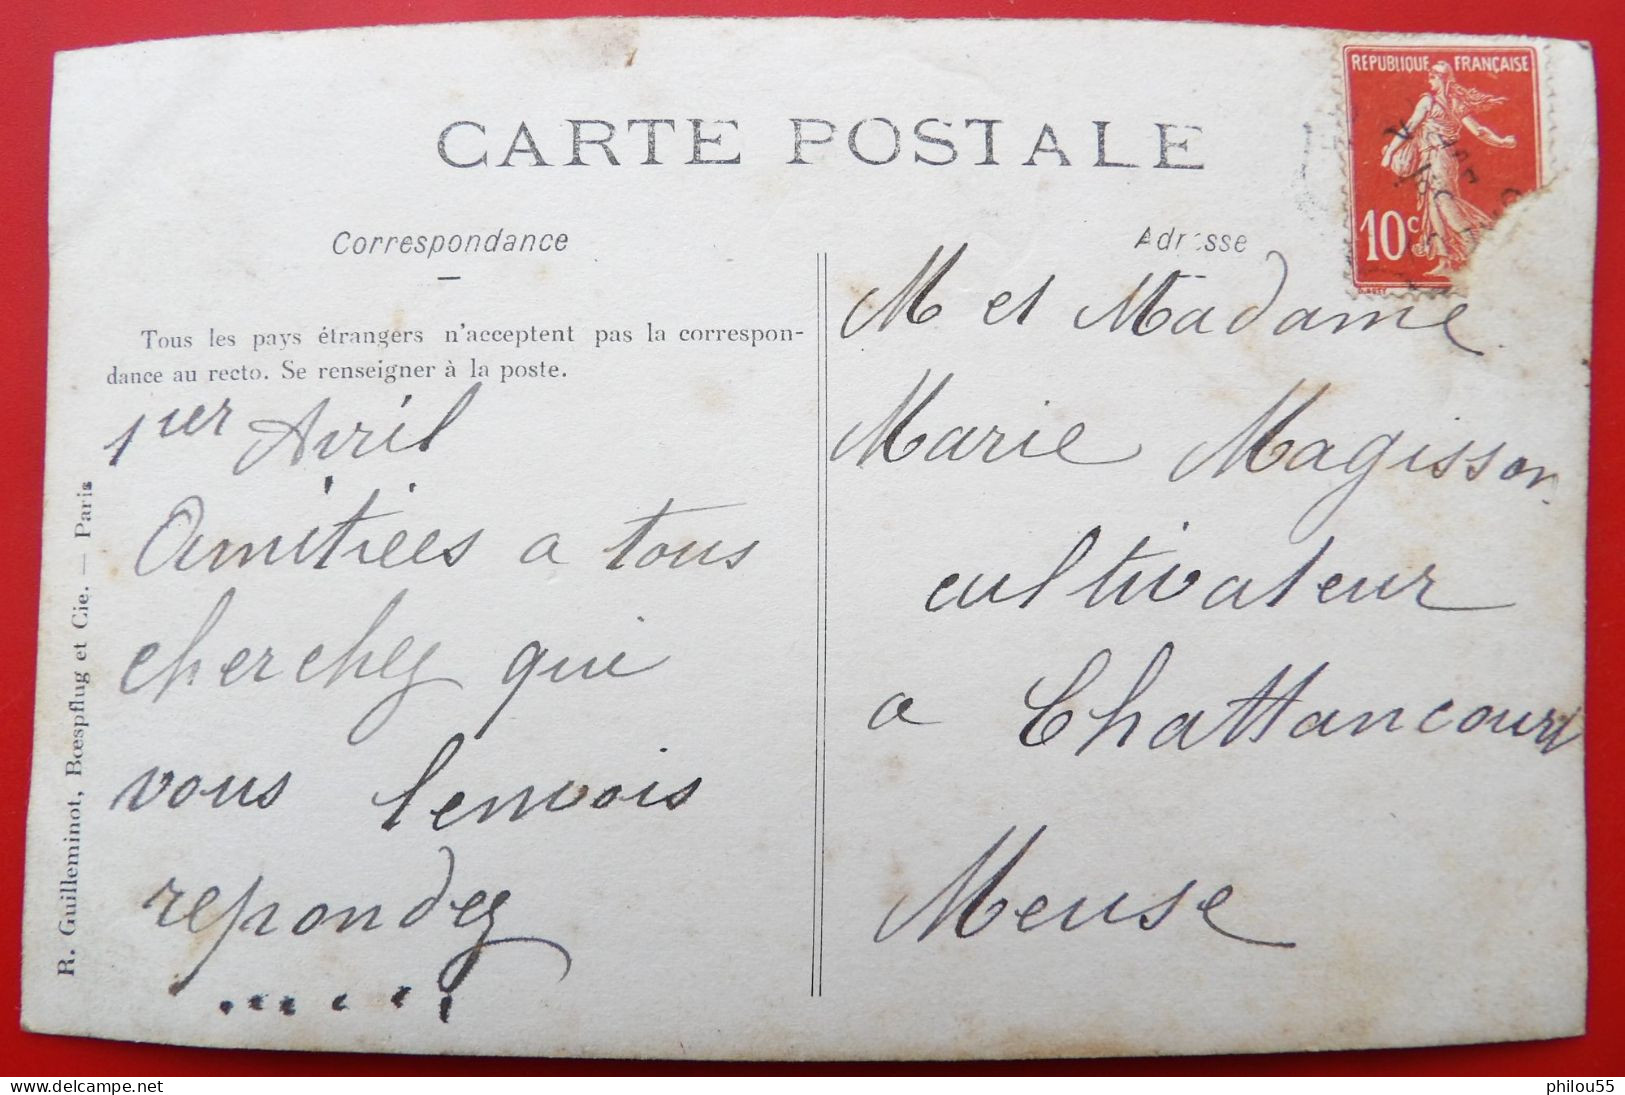 CARTE POSTALE
RÉPUBLIQUE FRANÇAISE
10c
Correspondance
Adresse
Tous les pays étrangers n'acceptent pas la correspon-
dance au recto. Se renseigner à la poste.
1er Avril
Amitiées a tous
cherchez qui
vous lenvois
repondez
.......
M et Madame
Marie Magisson
cultivateur
a Chattancourt
Meuse
R. Guilleminot, Bœspflug et Cie. — Paris
delcampe.net
philou55